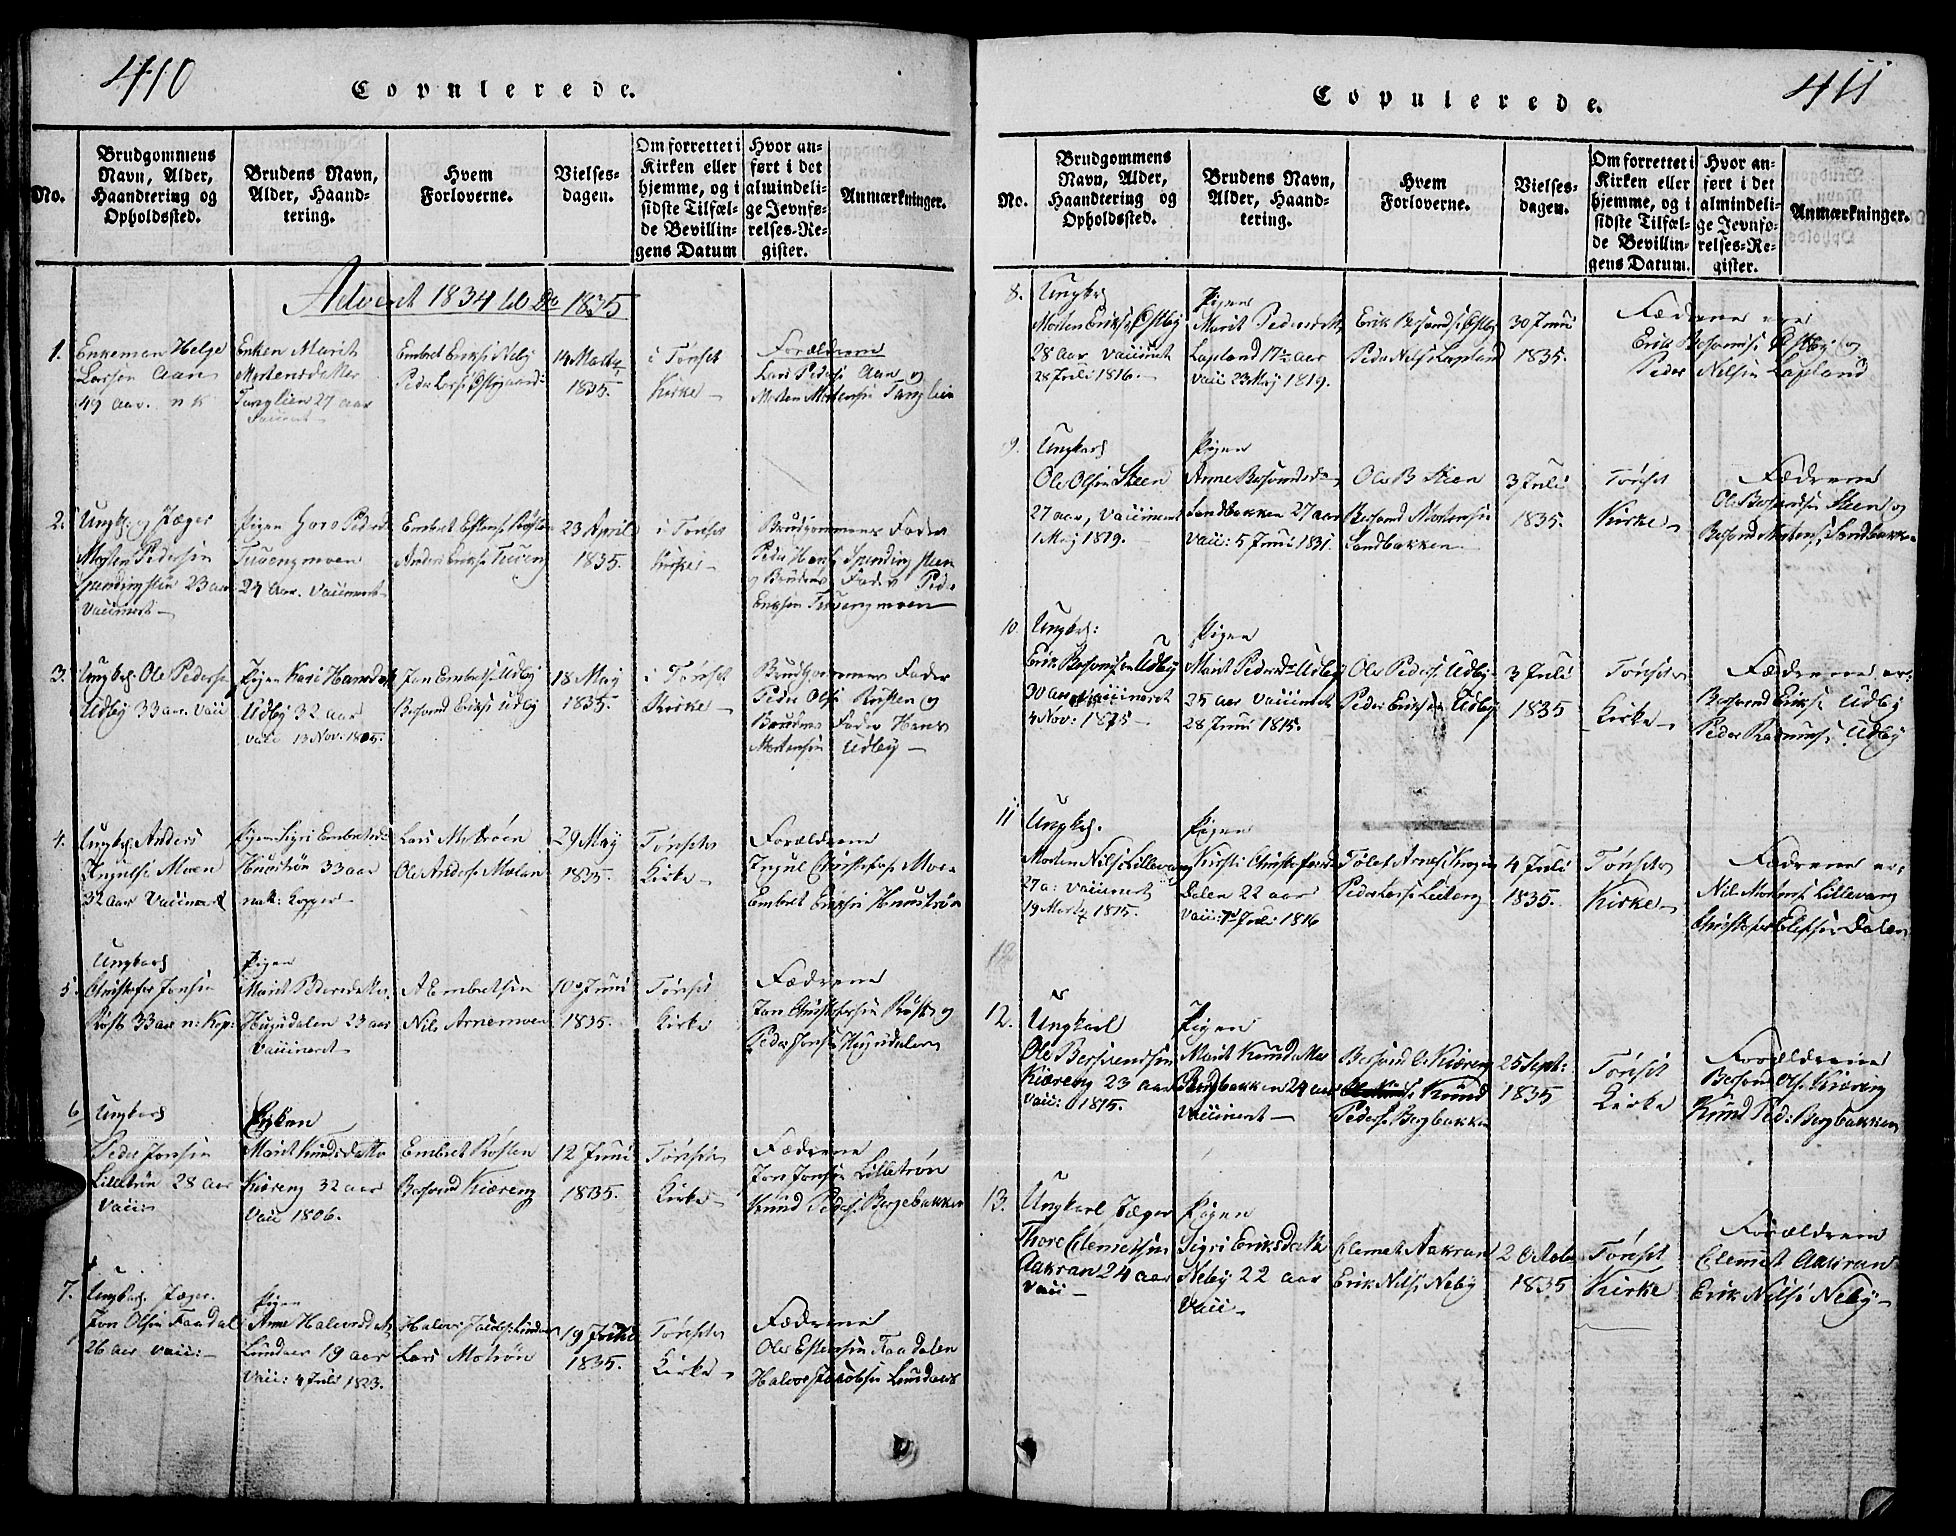 410
Copulerede.
No.
Brudgommens
Navn, Alder,
Haandtering og
Opholdssted.
Brudens Navn,
Alder, Haand-
tering.
Hvem
Forloverne.
Vielses-
dagen.
Om forrettet i
Kirken eller
hjemme, og i
sidste Tilfæl-
de Bevillin-
gens Datum
Hvor an-
ført i det
almindeli-
ge Jevnfø-
relses-Re-
gister.
Anmærkninger.
Advent 1834 til Do 1835
1.
Enkeman Helge
Larsen Aaen
49 aar. n k
Enken Marit
Mortensdatter
Tanglien 27 aar
Embret Eriks: Neby
Peder Lars: Østgaard
14 Martz
1835.
i Tønset
Kirke
Forældrene
Lars Peders: Aaen og
Morten Mortensen Tanglien
2.
Ungk: og Jæger
Morten Pedersen
23 aar
Vaccineret
Pigen
24 Aar. Vaccineret
Embret Estens: Røsten
Anders Eriks: Tueng
23 April
1835.
i Tønset
Kirke
Brudgommens Fader
Peder Hans:
og Brudens Fader Peder
Eriksen
3.
Ungk: Ole Peders:
Udby 33 aar. Vacc
Pigen Kari Hansdat
Udby 32 aar
vacc 13 Nov. 1805.
Jon Embrets: Udby
Bersvend Eriks: Udby
18 May
1835.
i Tønset
Kirke
Brudgommens Fader
Peder Ols: Røsten og
Brudens Fader Hans
Mortensen Udby
4.
Ungk: Anders
Ingvals: Moen
32 aar Vaccineret
Pigen Sigri Embretsda
33 aar
nat: Kopper
Lars Motrøen
Ole Anders: Molan
29 May
1835.
Tønset
Kirke
Forældrene
Ingvl Christophers: Moen
Embret Eriksen
5.
Ungkarl
Christopher Jonsen
Røst 33 aar n: Kop:
Pigen
Marit Pedersdatter
Hugudalen 23 aar
Vaccineret
A Embretsen
Nils Arnemoen
10de Juni
1835.
Tønset
Kirke
Fædrene
Jon Christophersen Røst og
Peder Jons: Hugudalen
6.
Ungkarl
Peder Jonsen
Lilletrøn 28 aar
Vacc:
Marit Knudsdatter
Kiøreng 32 aar
Vacc 1806.
Embret Røsten
Bersvend Kiøreng
12 Juni
1835.
Tønset
Kirke
Fædrene
Jon Jonsen Lilletrøn
Knud Peders: Bergebakken
7.
Ungkarl. Jæger.
Jon Olsen Faadal
26 aar vacc:
Pigen
Anne Halvorsdat
Lundaas 19 aar
Vacc: 4 Juli 1823.
Lars Motrøn
19 Juni
1835.
Tønset
Kirke
Fædrene
Ole Estensen Faadalen
Halvor Jacobsen Lundaas
411
Copulerede.
No.
Brudgommens
Navn, Alder,
Haandtering og
Opholdssted.
Brudens Navn,
Alder, Haand-
tering.
Hvem
Forloverne.
Vielses-
dagen.
Om forrettet i
Kirken eller
hjemme, og i
sidste Tilfæl-
de Bevillin-
gens Datum.
Hvor an-
ført i det
almindeli-
ge Jevnfø-
relses-Re-
gister.
Anmærkninger.
8.
Ungk:
Morten Eriks: Østby
28 aar Vaccineret
28 Juli 1816.
Pigen
Marit Pedersdat
Lapland 17½ aar
vacc 23 May 1819.
Erik Bersvends: Østby
Peder Nils: Lapland
30 Juni
1835.
Fædrene ere
Erik Bersvends: Østby og
Peder Nilsen Lapland
9.
Ungkarl
Ole Olsen Steen
27 aar, Vaccineret
1 May 1819.
Pigen
Anne Bersvendsda
Sandbakken 27 aar
Vacc: 5 Juni 1831.
Ole B Steen
Bersvend Mortensen
Sandbakken
3 Juli
1835.
Tønset
Kirke
Fædrene
Ole Bersvendsen Steen og
Bersvend Mortens: Sandbakken
10.
Ungkrl:
Erik Bersvendsen Udby
30 aar vaccineret
3 Nov: 1815
Pigen
Marit Pedersda Udby
25 aar Vaccineret
28 Juni 1815.
Ole Peders: Udby
Peder Eriksen Udby
3 Juli
1835
Tønset
Kirke
Fædrene er:
Bersvend Eriks: Udby
Peder Rasmus: Udby
11
Ungkrl.
Morten Nils: Lillevang
27 a: Vaccineret
19 Martz 1815.
Pigen
Kirsti Christophersda
Dalen 22 aar
Vacc: 1 Juli 1816
Tollef Arnes: Krogen
Peder Lars: Lileng
4 Juli
1835.
Tønset
Kirke
Fædrene er:
Nils Mortens: Lillevang
Christopher Olefsen Dalen
12.
Ungkarl
Ole Bersvendsen
Kiøreng 23 aar
vacc: 1815.
Pigen
Marit Knudsdatter
Bergbakken 24 aar
Vaccineret
Bersvend O: Kiøreng
Knud
Peders: Bergbakken
25 Sept:
1835
Tønset
Kirke
Forældrene
Bersvend Ols: Kiøreng
Knud Ped: Bergbakken
13.
Ungkarl Jæger
Thore Clemetsen
Aakran 24 aar
Vacc
Pigen
Sigri Eriksdatt
Neby 22 aar
Vacc
Clemet Aakran
Erik Nils: Neby
2 Octobr
1835
Tønset
Kirke
Forældrene
Clemet Aakran
Erik Nils: Neby